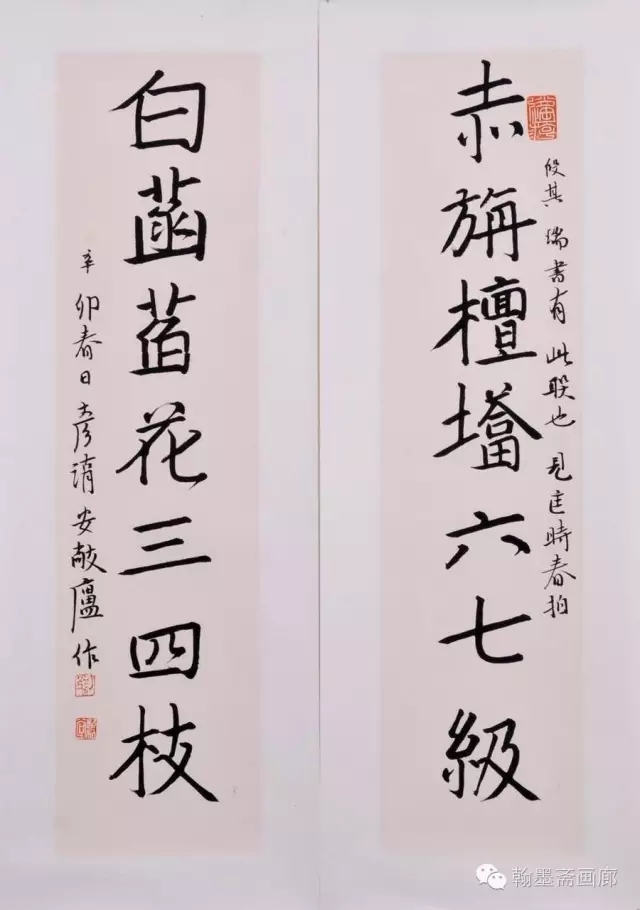 赤旃檀墖六七級
段其瑞書有此联也見匡時春拍
白菡萏花三四枝
辛卯春日彦安廬作
翰墨斋画廊